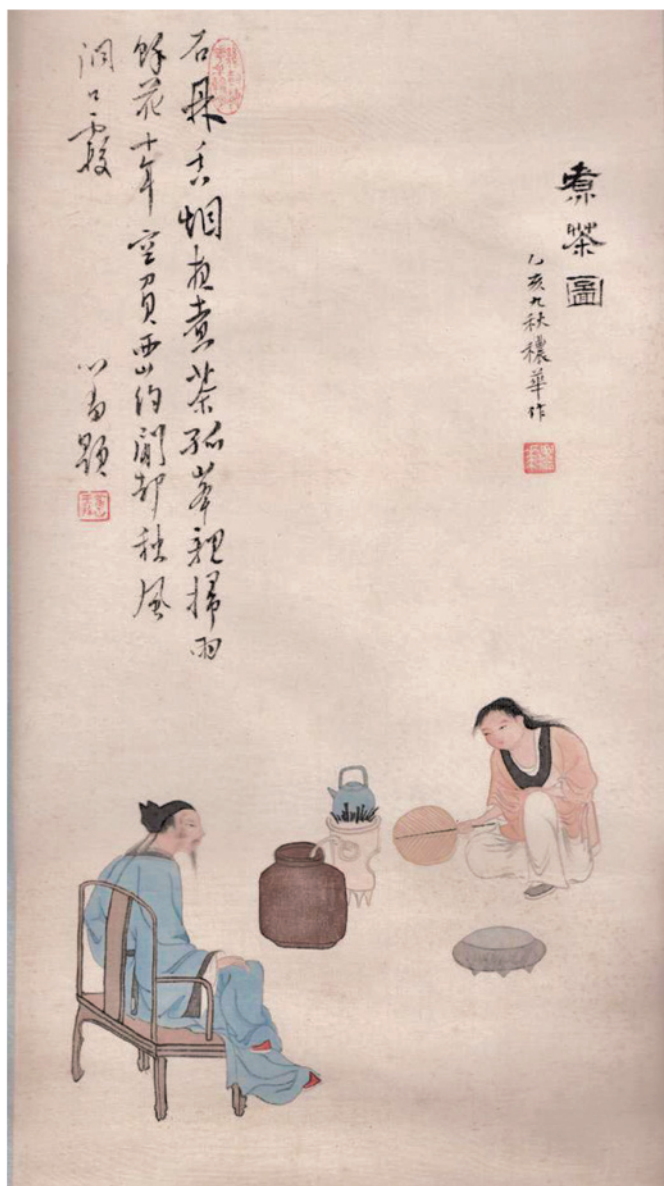 煮茶圖
乙亥九秋穠華作
石鼎香烟夜煮茶孤峯親掃雨
餘花十年空負西山約閒却秋風
洞口霞
心畬題